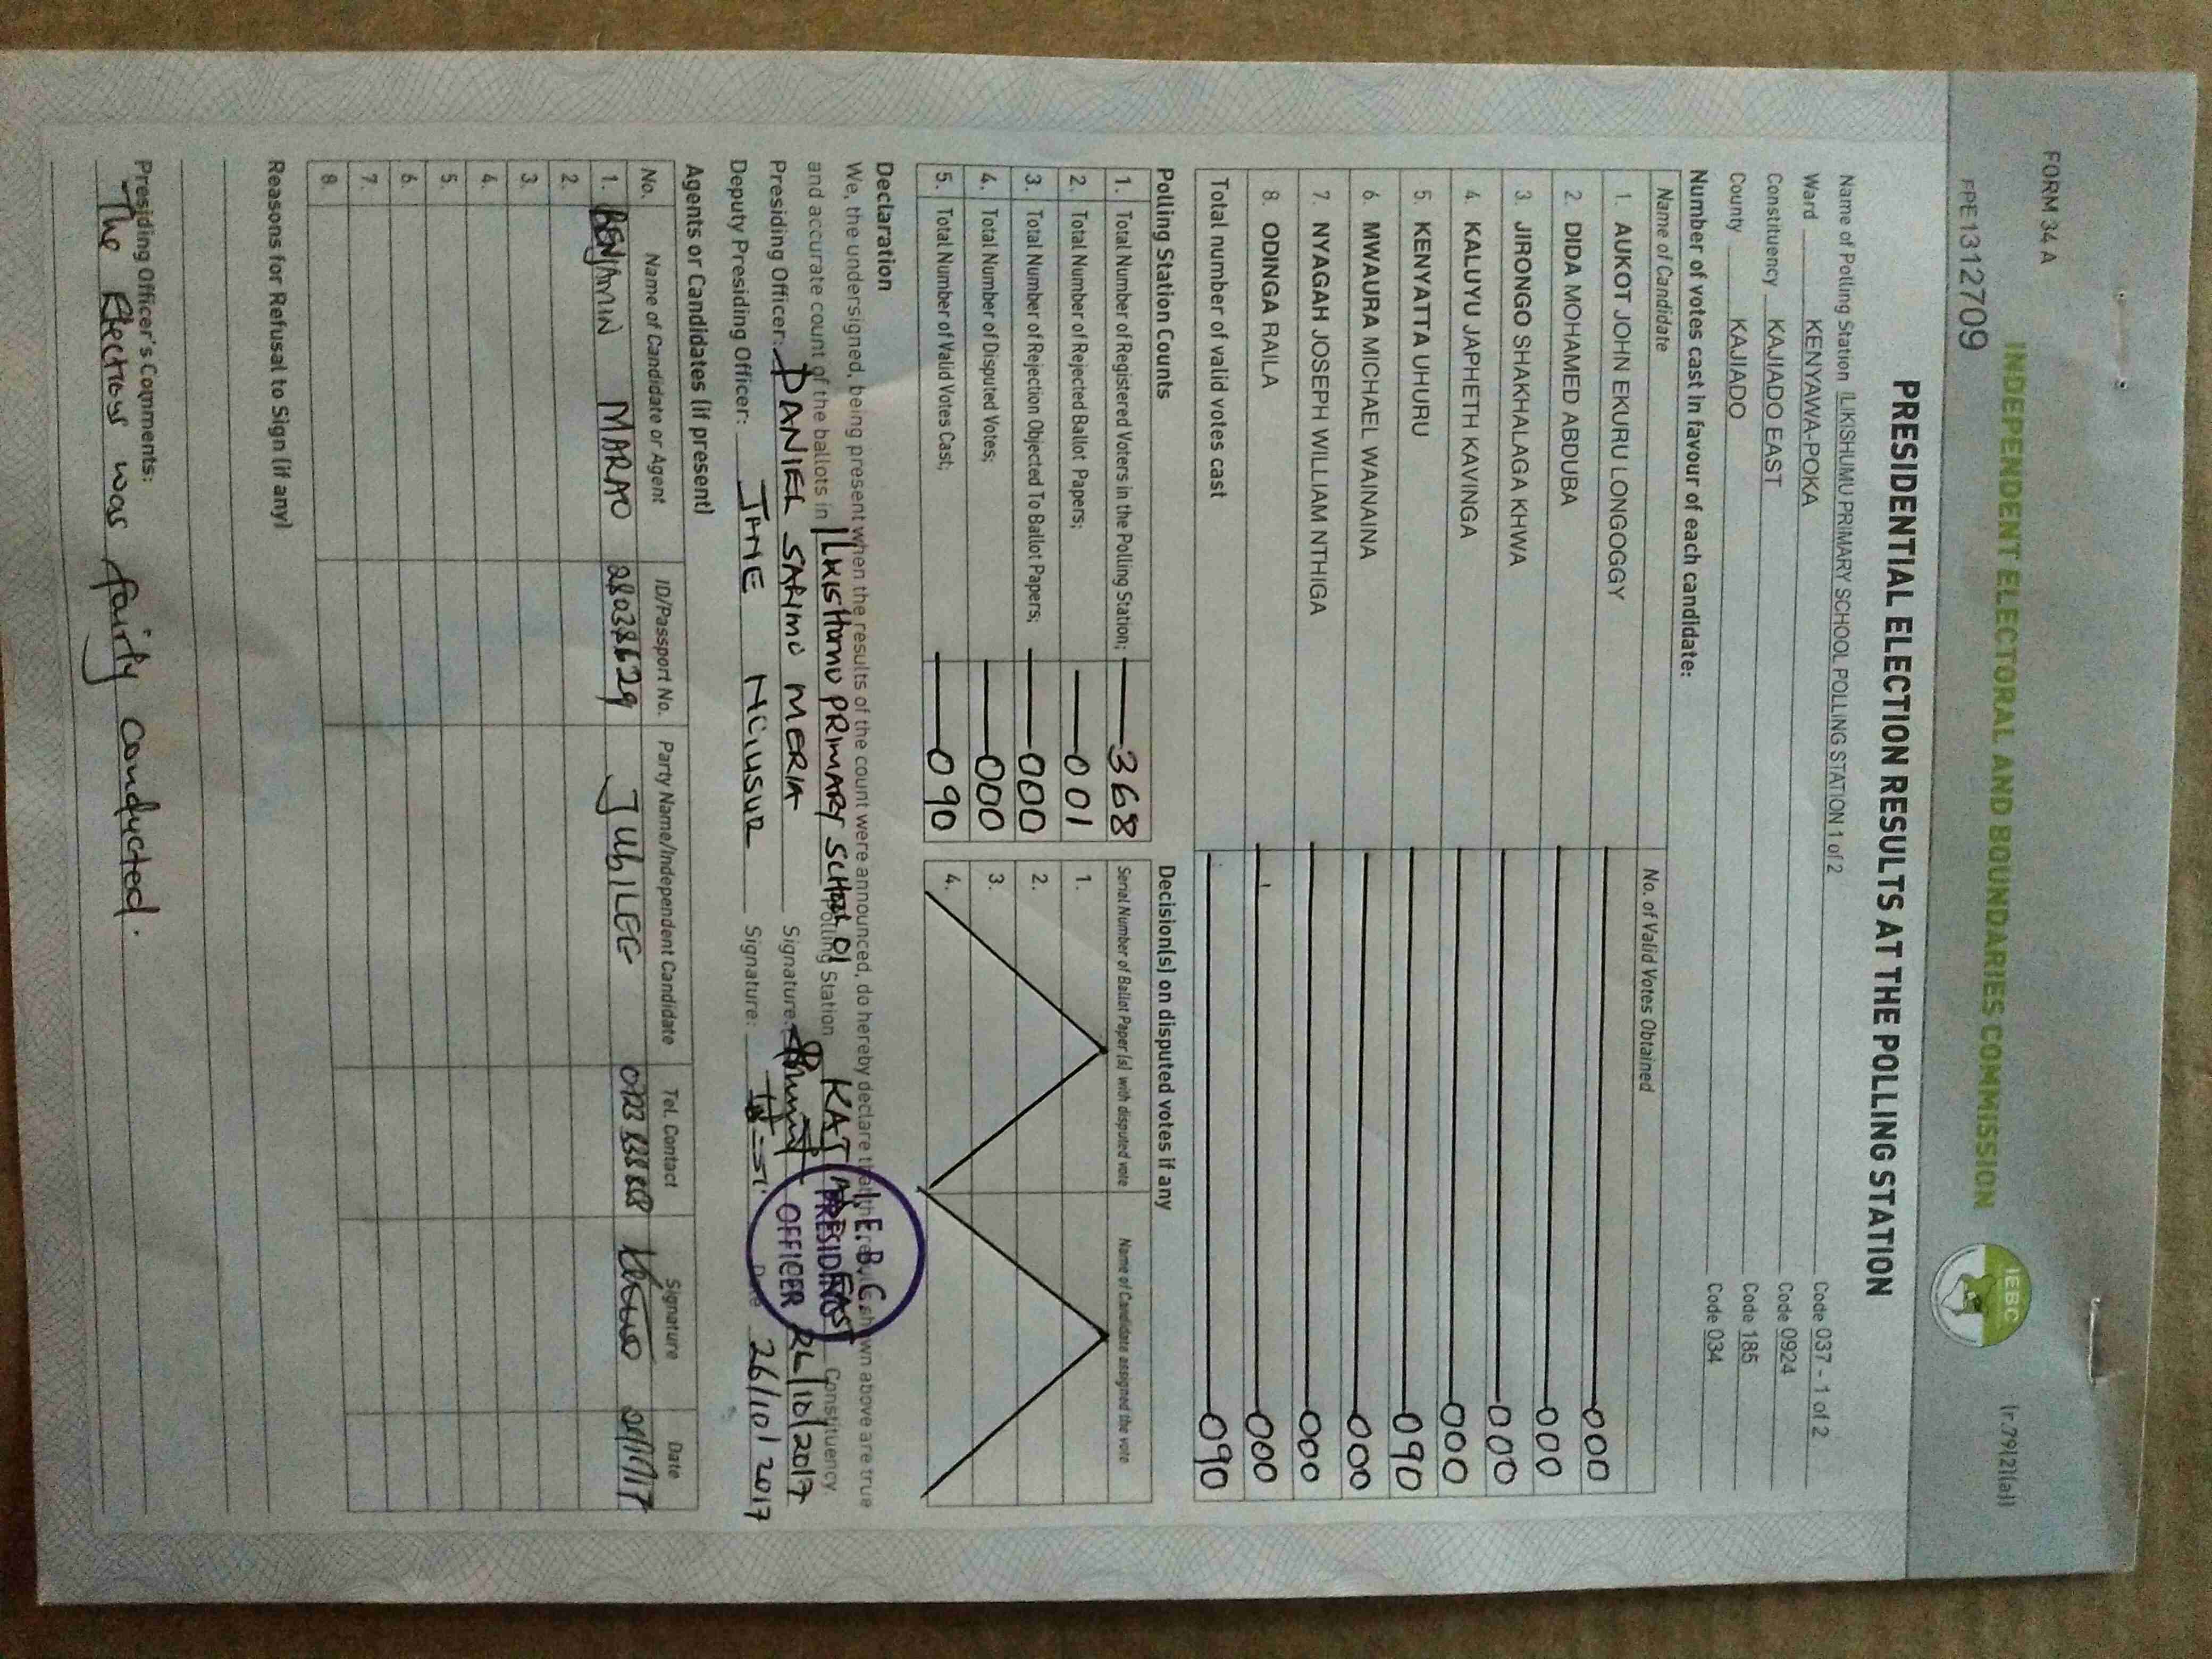 FORM 34 A
(r.79(2)(a))
INDEPENDENT ELECTORAL AND BOUNDARIES COMMISSION
IEBC
FPE1312709
PRESIDENTIAL ELECTION RESULTS AT THE POLLING STATION
Name of Polling Station ILIKISHUMU PRIMARY SCHOOL POLLING STATION 1 of 2 Code 037 - 1 of 2
Ward KENYAWA-POKA Code 0924
Constituency KAJIADO EAST Code 185
County KAJIADO Code 034
Number of votes cast in favour of each candidate:
Name of Candidate No. of Valid Votes Obtained
1. AUKOT JOHN EKURU LONGOGGY 000
2. DIDA MOHAMED ABDUBA 000
3. JIRONGO SHAKHALAGA KHWA 000
4. KALUYU JAPHETH KAVINGA 000
5. KENYATTA UHURU 090
6. MWAURA MICHAEL WAINAINA 000
7. NYAGAH JOSEPH WILLIAM NTHIGA 000
8. ODINGA RAILA 000
Total number of valid votes cast 090
Polling Station Counts
1. Total Number of Registered Voters in the Polling Station; 368
2. Total Number of Rejected Ballot Papers; 001
3. Total Number of Rejection Objected To Ballot Papers; 000
4. Total Number of Disputed Votes; 000
5. Total Number of Valid Votes Cast; 090
Decision(s) on disputed votes if any
Serial Number of Ballot Paper (s) with disputed vote Name of Candidate assigned the vote
1.
2.
3.
4.
Declaration
We, the undersigned, being present when the results of the count were announced, do hereby declare that the results shown above are true
and accurate count of the ballots in ILKISHUMU PRIMARY SCHOOL 01 Polling Station EAST Constituency
Presiding Officer: DANIEL MERIA Signature: 26/10/2017
Deputy Presiding Officer: JANE Signature: Date 26/10/2017
I.E.B.C
PRESIDING
OFFICER
Agents or Candidates (if present)
No. Name of Candidate or Agent ID/Passport No. Party Name/Independent Candidate Tel. Contact Signature Date
1. BENJAMIN MARAO 28038629 JUBILEE
2.
3.
4.
5.
6.
7.
8.
Reasons for Refusal to Sign (if any)
Presiding Officer's Comments:
The Elections was fairly conducted.